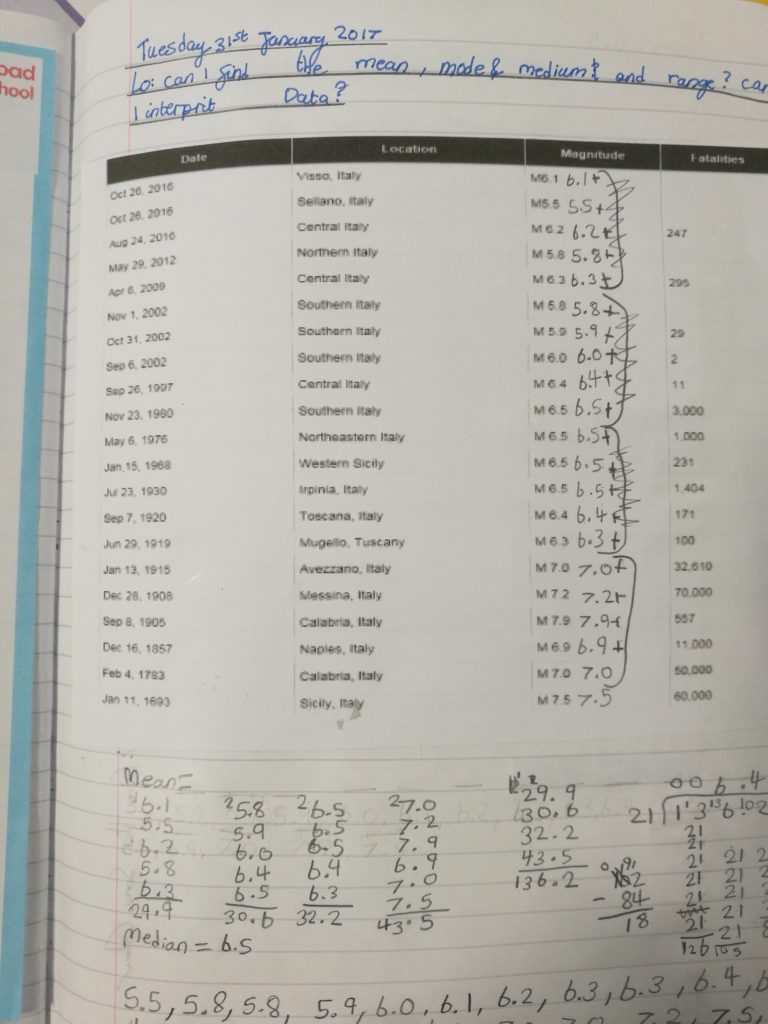 oad
hool
Tuesday 31st January 2017
Lo: can I find the mean, mode & medium & and range? can
I interprit Data?
Date Location Magnitude Fatalities
Oct 26, 2016 Visso, Italy M6.1 6.1+
Oct 26, 2016 Sellano, Italy M5.5 5.5+
Aug 24, 2016 Central Italy M 6.2 6.2+ 247
May 29, 2012 Northern Italy M 5.8 5.8+
Apr 6, 2009 Central Italy M 6.3 6.3+ 295
Nov 1, 2002 Southern Italy M 5.8 5.8+
Oct 31, 2002 Southern Italy M 5.9 5.9+ 29
Sep 6, 2002 Southern Italy M 6.0 6.0+ 2
Sep 26, 1997 Central Italy M 6.4 6.4+ 11
Nov 23, 1980 Southern Italy M 6.5 6.5+ 3,000
May 6, 1976 Northeastern Italy M 6.5 6.5+ 1,000
Jan, 15, 1968 Western Sicily M 6.5 6.5+ 231
Jul 23, 1930 Irpinia, Italy M 6.5 6.5+ 1,404
Sep 7, 1920 Toscana, Italy M 6.4 6.4+ 171
Jun 29, 1919 Mugello, Tuscany M 6.3 6.3+ 100
Jan 13, 1915 Avezzano, Italy M 7.0 7.0+ 32,610
Dec 28, 1908 Messina, Italy M 7.2 7.2+ 70,000
Sep 8, 1905 Calabria, Italy M 7.9 7.9+ 557
Dec 16, 1857 Naples, Italy M 6.9 6.9+ 11,000
Feb 4, 1783 Calabria, Italy M 7.0 7.0 50,000
Jan 11, 1693 Sicily, Italy M 7.5 7.5 60,000
Mean=
6.1 25.8 26.5 27.0 29.9 006.4
5.5 5.9 6.5 7.2 30.6 21 1 13 136 .102
6.2 6.0 6.5 7.9 32.2 21
5.8 6.4 6.4 6.9 43.5 21 21 2
6.3 6.5 6.3 7.0 136.2 102 21 21 2
29.9 30.6 32.2 7.5 - 84 21 21 2
43.5 18 21 21
Median = 6.5 126 105
5.5, 5.8, 5.8, 5.9, 6.0, 6.1, 6.2, 6.3, 6.3, 6.4, 6
7.2, 7.5,